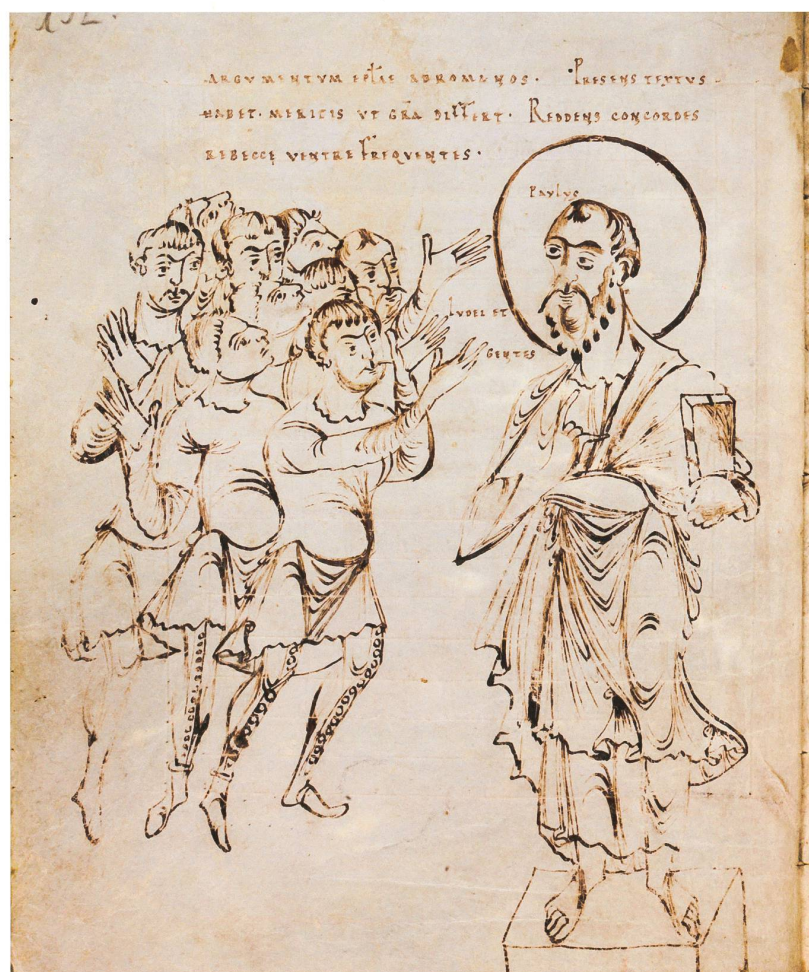 132.
ARGUMENTUM EPLAE ADROMANOS. PRESENS TEXTUS
HABET. MERITIS UT GRA DIFFERT. REDDENS CONCORDES
REBECCĘ VENTRE FREQUENTES.
PAULUS
IUDEI ET
GENTES